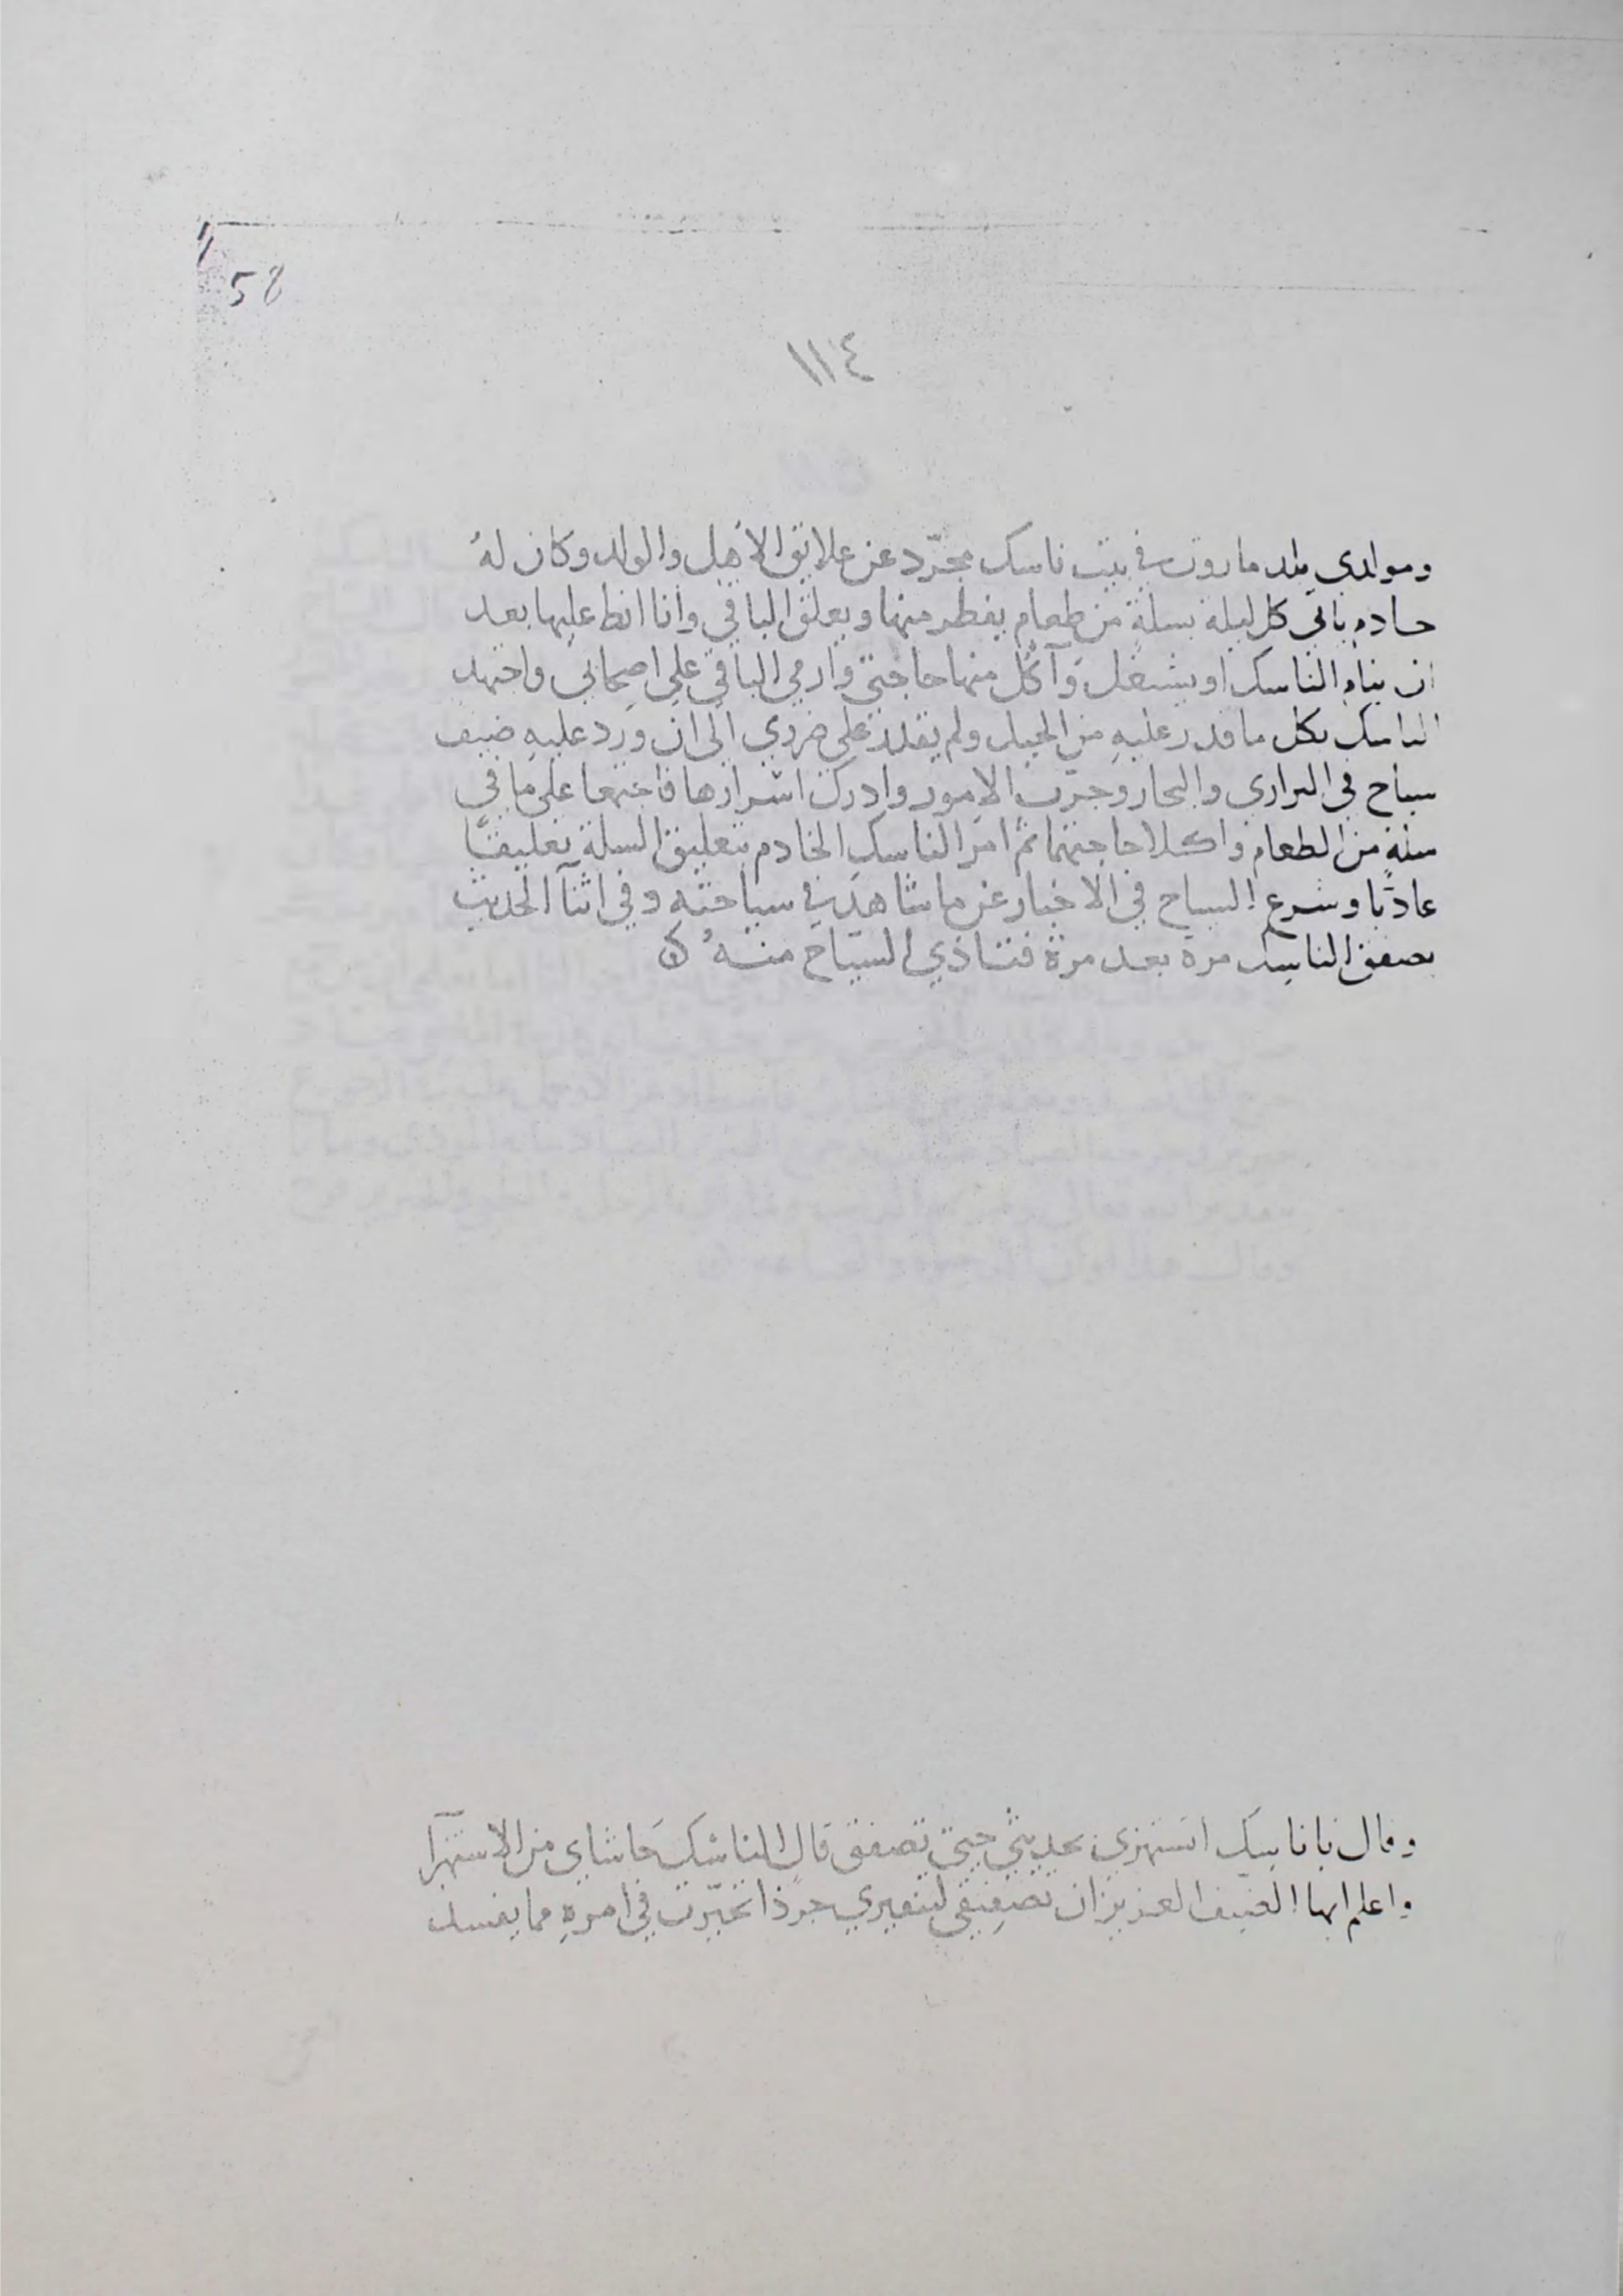 58
١١٤
ومولدي بلد ماروت في بيت ناسك مجرّد عن علايق الأهل والولد وكان لهُ
خادم ياتي كل ليلة بسلةٍ من طعام يفطر منها ويعلق الباقي وانا انط عليها بعد
ان ينام الناسك او يشتغل وَآكُل منها حاجتي وارمي الباقي علي اصحابي واجتهد
الناسك بكل ما قدر عليهِ من الحيل ولم يقدر علي ضروي الي ان ورد عليهِ ضيف
سياح في البراري والبحار وجرّب الامور وادرك اسرارها فاجتمعا علي ما في
سلةٍ من الطعام واكلا حاجتهما ثم امَر الناسك الخادم بتعليق السلة تعليقًا
عاديًا وشرع السياح في الاخبار عن ما شاهد في سياحته وفي اثنآ الحديث
يصفق الناسك مرة بعد مرة فتاذي السياح منهُ
وقال يا ناسِك اتستهزي بحديثي حتي تصفق قال الناسك حاشاي من الاستهزآ
واعلم ايها الضيف العزيز ان تصفيقي لتنفيري جرذا تحيّرت في امرهِ مما يفسد